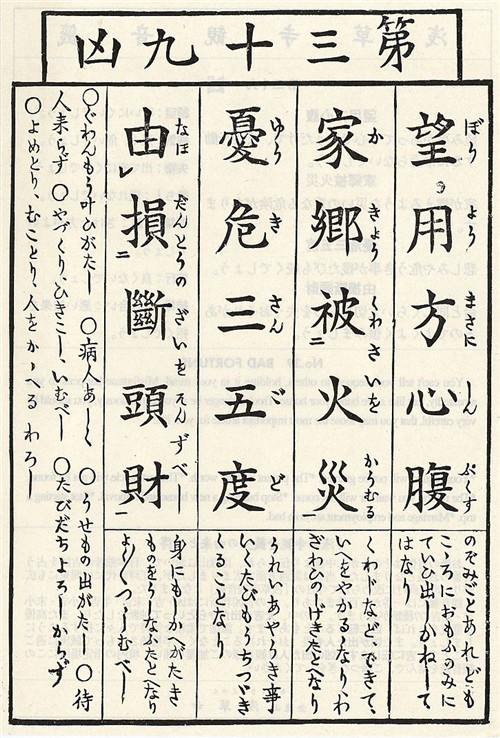 第三十九凶
望用方心腹
ぼう よう まさに しん ぷくす
のぞみごとあれども
こゝろにおもふのみに
ていひ出しかねして
はなり
家郷被火災
か きょう くわさいを かうむる
くわじなど、できて、
いへをやかるゝなり、わ
ざわひのしげきたとへなり
憂危三五度
ゆう き さん ご ど
うれいあやうき事
いくたびもうちつゞき
ることなり
由損斷頭財
なほ だんとうのざいをそんずべし
身にもしかへがたき
ものをうしなふたとへなり
よく〳〵つゝしむべし
○ぐわんもう叶ひがたし ○病人あしく ○うせもの出がたし ○待
人来らず ○やづくり、ひきこし、いむべし ○たびだちよろしからず
○よめとり、むことり、人をかゝへるわろし